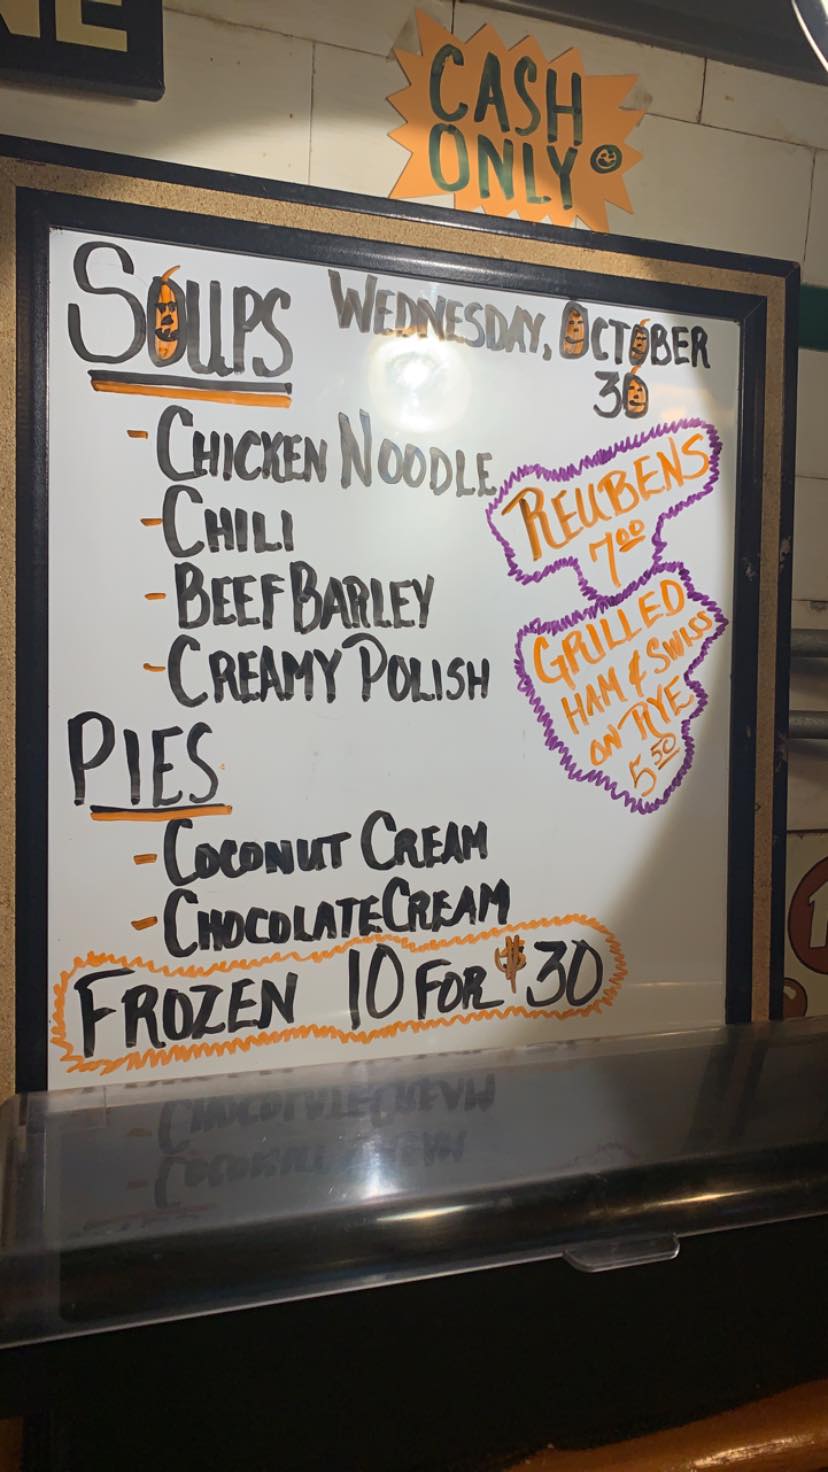 NE
CASH
ONLY
SOUPS
WEDNESDAY, OCTOBER
30
- CHICKEN NOODLE
- CHILI
- BEEF BARLEY
- CREAMY POLISH
REUBENS
7.00
GRILLED
HAM & SWISS
ON RYE
5.50
PIES
- COCONUT CREAM
- CHOCOLATE CREAM
FROZEN 10 FOR $30